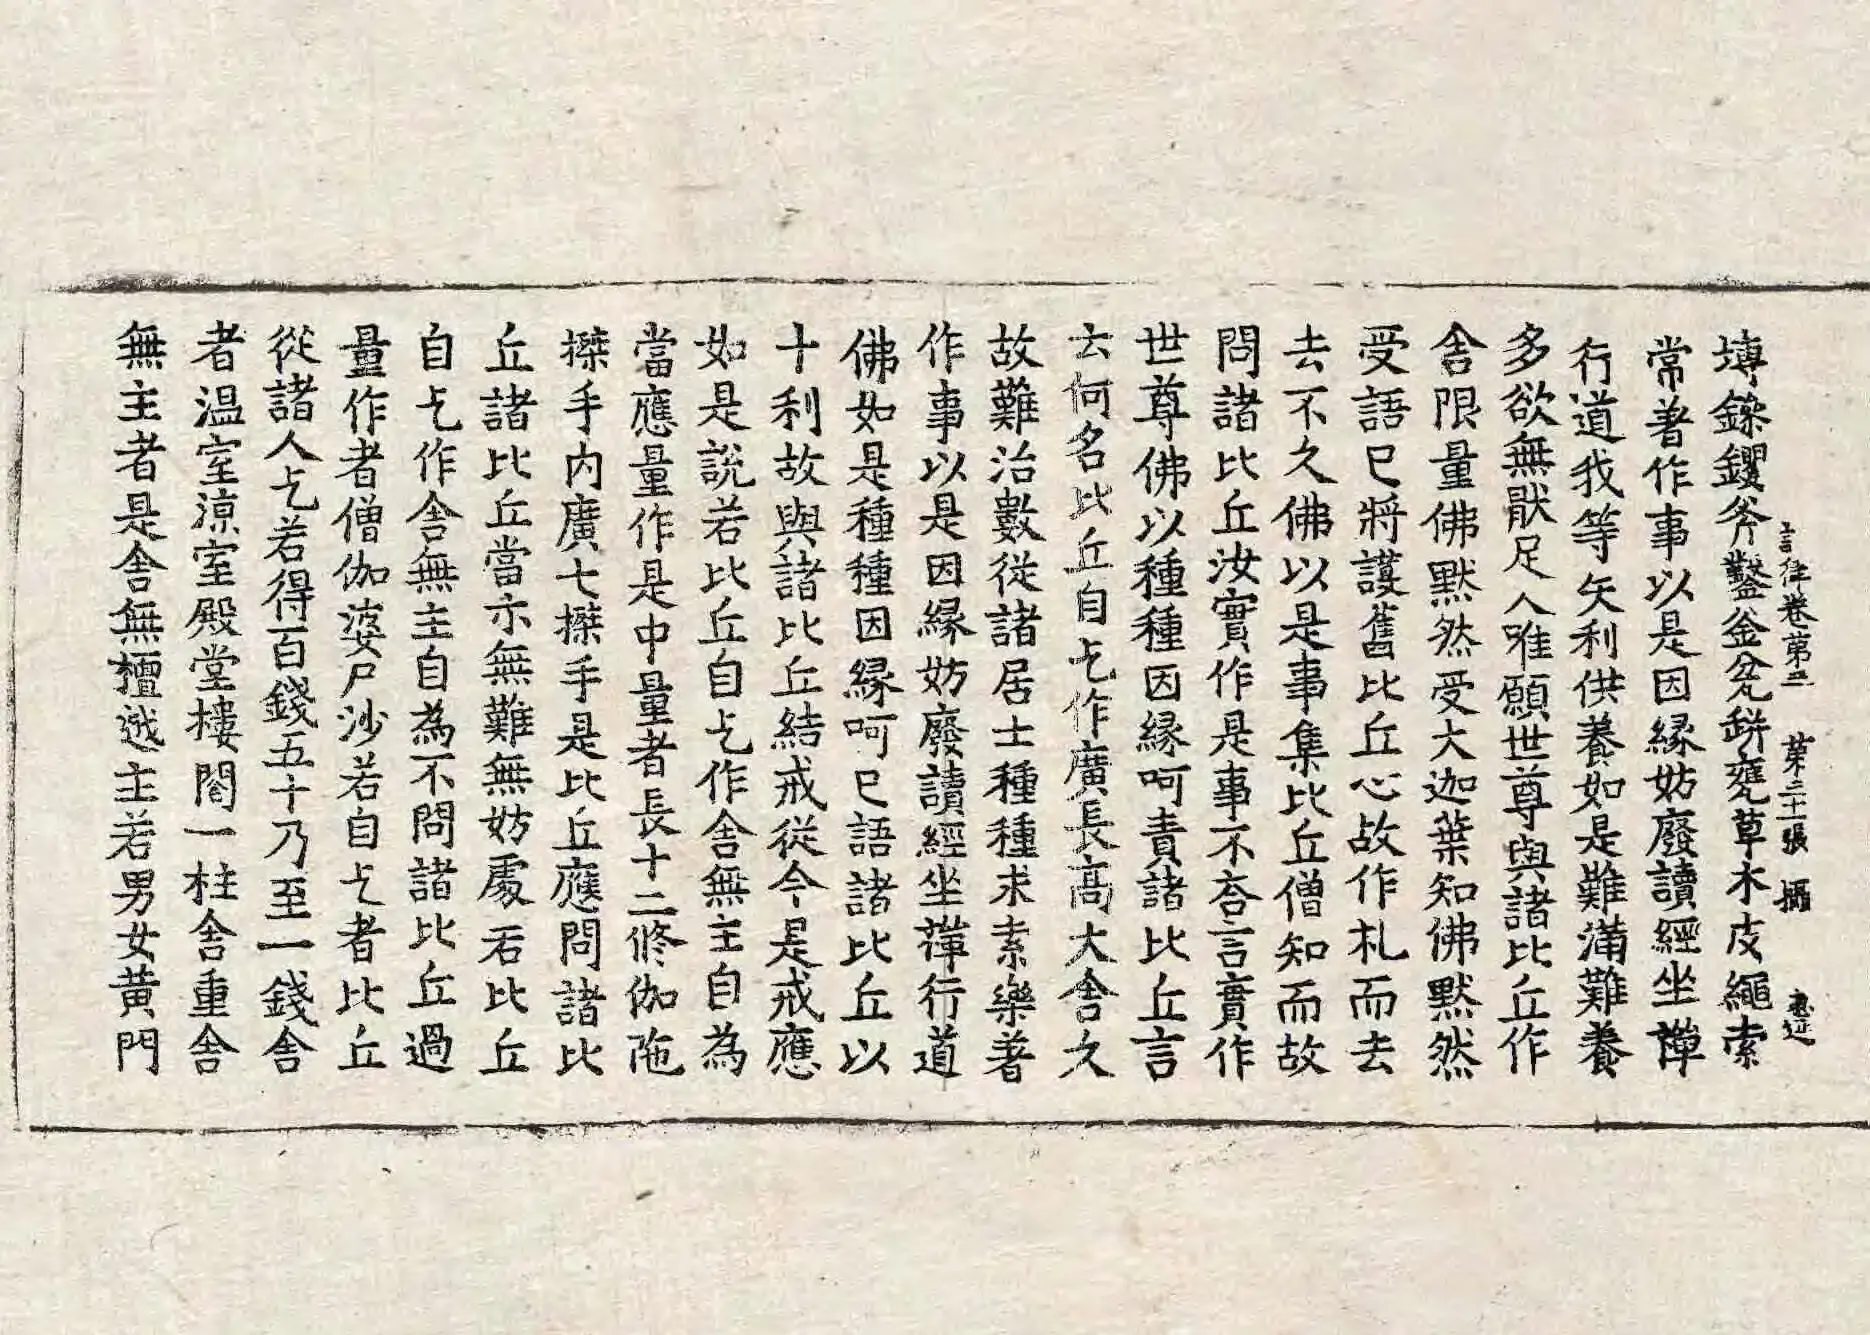 誦律卷第三 第三十一張 攝
塼鏼钁斧鑿釜瓫缾甕草木皮繩索
常著作事以是因緣妨廢讀經坐禪
行道我等失利供養如是難滿難養
多欲無猒足人唯願世尊與諸比丘作
舍限量佛默然受大迦葉知佛默然
受語已將護舊比丘心故作札而去
去不久佛以是事集比丘僧知而故
問諸比丘汝實作是事不荅言實作
世尊佛以種種因緣呵責諸比丘言
云何名比丘自乞作廣長高大舍久
故難治數從諸居士種種求索樂著
作事以是因緣妨廢讀經坐禪行道
佛如是種種因緣呵已語諸比丘以
十利故與諸比丘結戒從今是戒應
如是說若比丘自乞作舍無主自為
當應量作是中量者長十二修伽陁
搩手內廣七搩手是比丘應問諸比
丘諸比丘當示無難無妨處若比丘
自乞作舍無主自為不問諸比丘過
量作者僧伽婆尸沙若自乞者比丘
從諸人乞若得百錢五十乃至一錢舍
者温室涼室殿堂樓閣一柱舍重舍
無主者是舍無檀越主若男女黃門